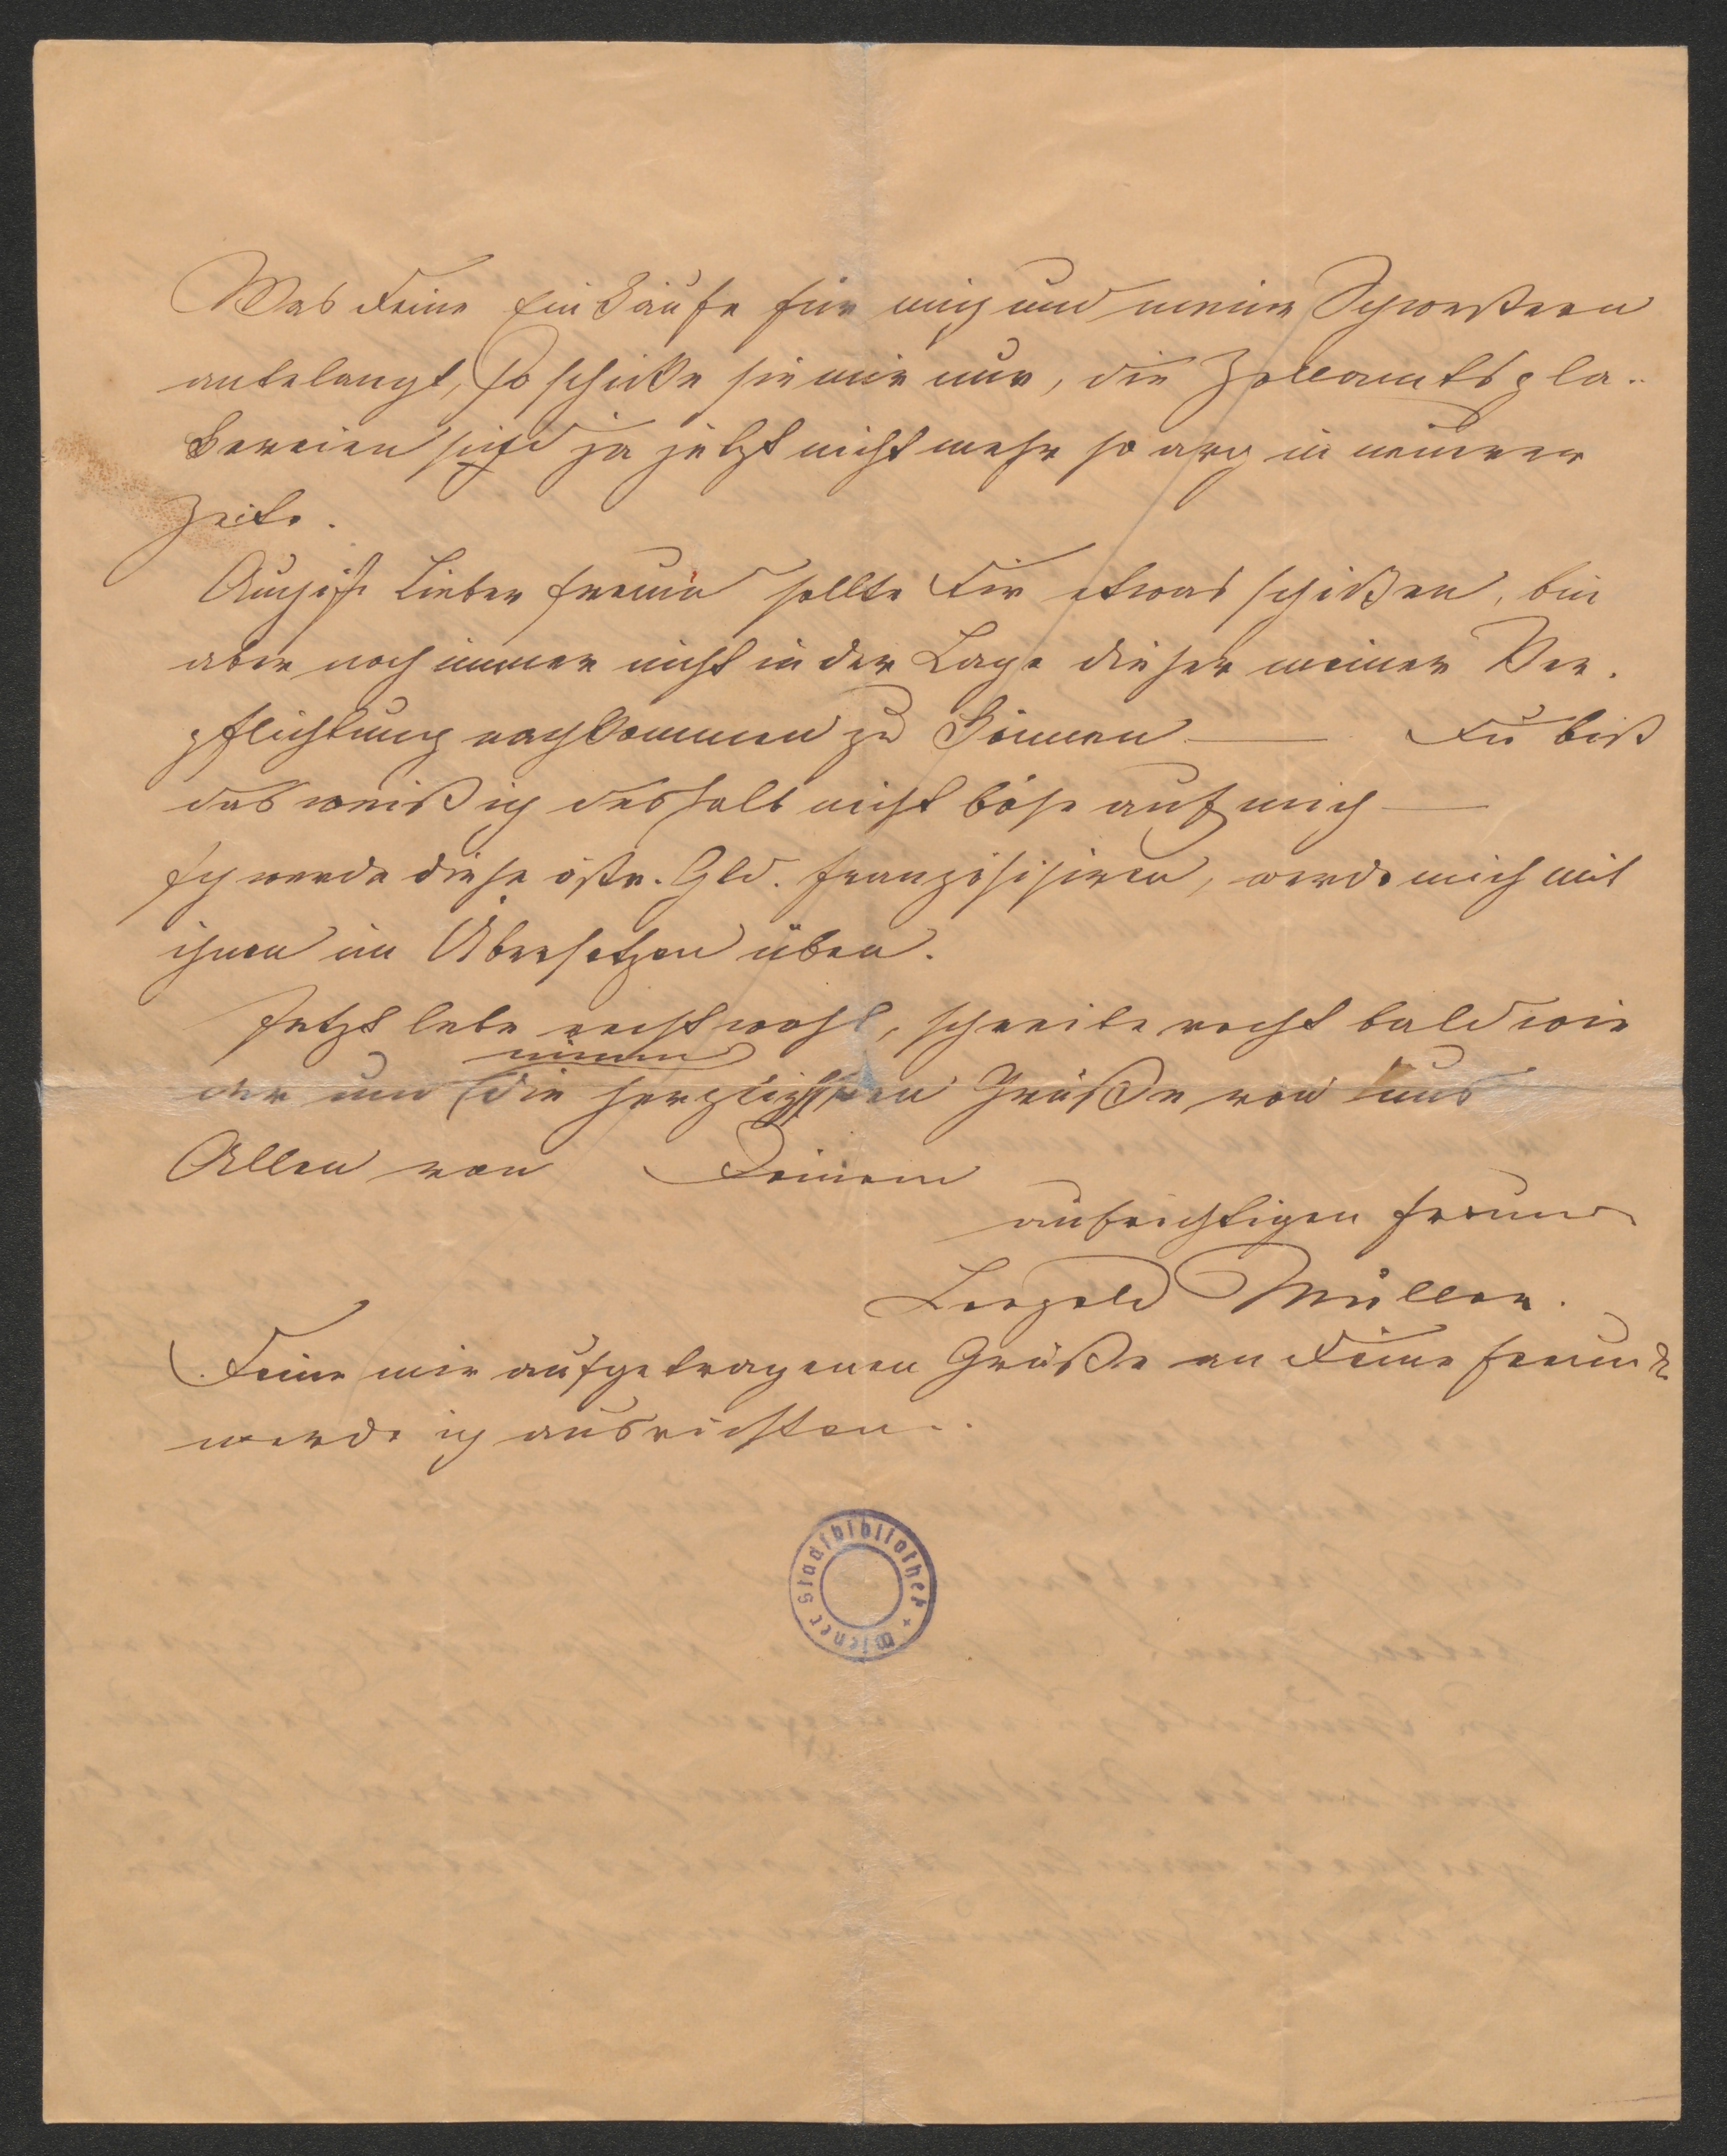 Was Deine Einkäufe für mich und meine Schwestern
anbelangt, so schicke sie mir nur, die Zollamtspla-
kereien sind ja jetzt nicht mehr so arg in neuerer
Zeit.
Auch ich lieber Freund sollte Dir etwas schicken, bin
aber noch immer nicht in der Lage dieser meiner Ver-
pflichtung nachkommen zu können — Du bist
das weiß ich deshalb nicht böse auf mich —
Ich werde diese östr. Gld. französisiren, werde mich mit
ihnen im Übersetzen üben.
Jetzt lebe recht wohl, schreibe recht bald wie
nimm
der und die herzlichsten Grüße von uns
Allen von Deinem
aufrichtigen Freund
Leopold Müller.
Deine mir aufgetragenen Grüße an Deine Freunde
werde ich ausrichten.
Wiener Stadtbibliothek +